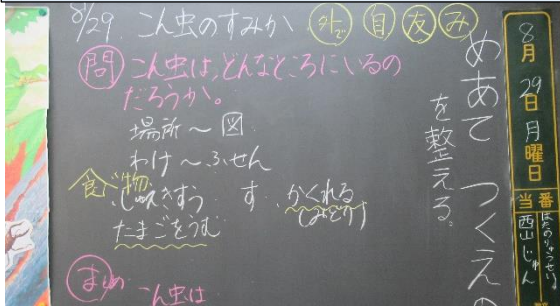 8/29. こん虫のすみか 外で 自 友 み
問 こん虫は、どんなところにいるの
だろうか。
場所〜図
わけ〜ふせん
食べ物
す かくれる
(みどり)
たまごをうむ
まとめ こん虫は
めあて つくえの
を整える。
8月29日月曜日
当番
西山じゅん